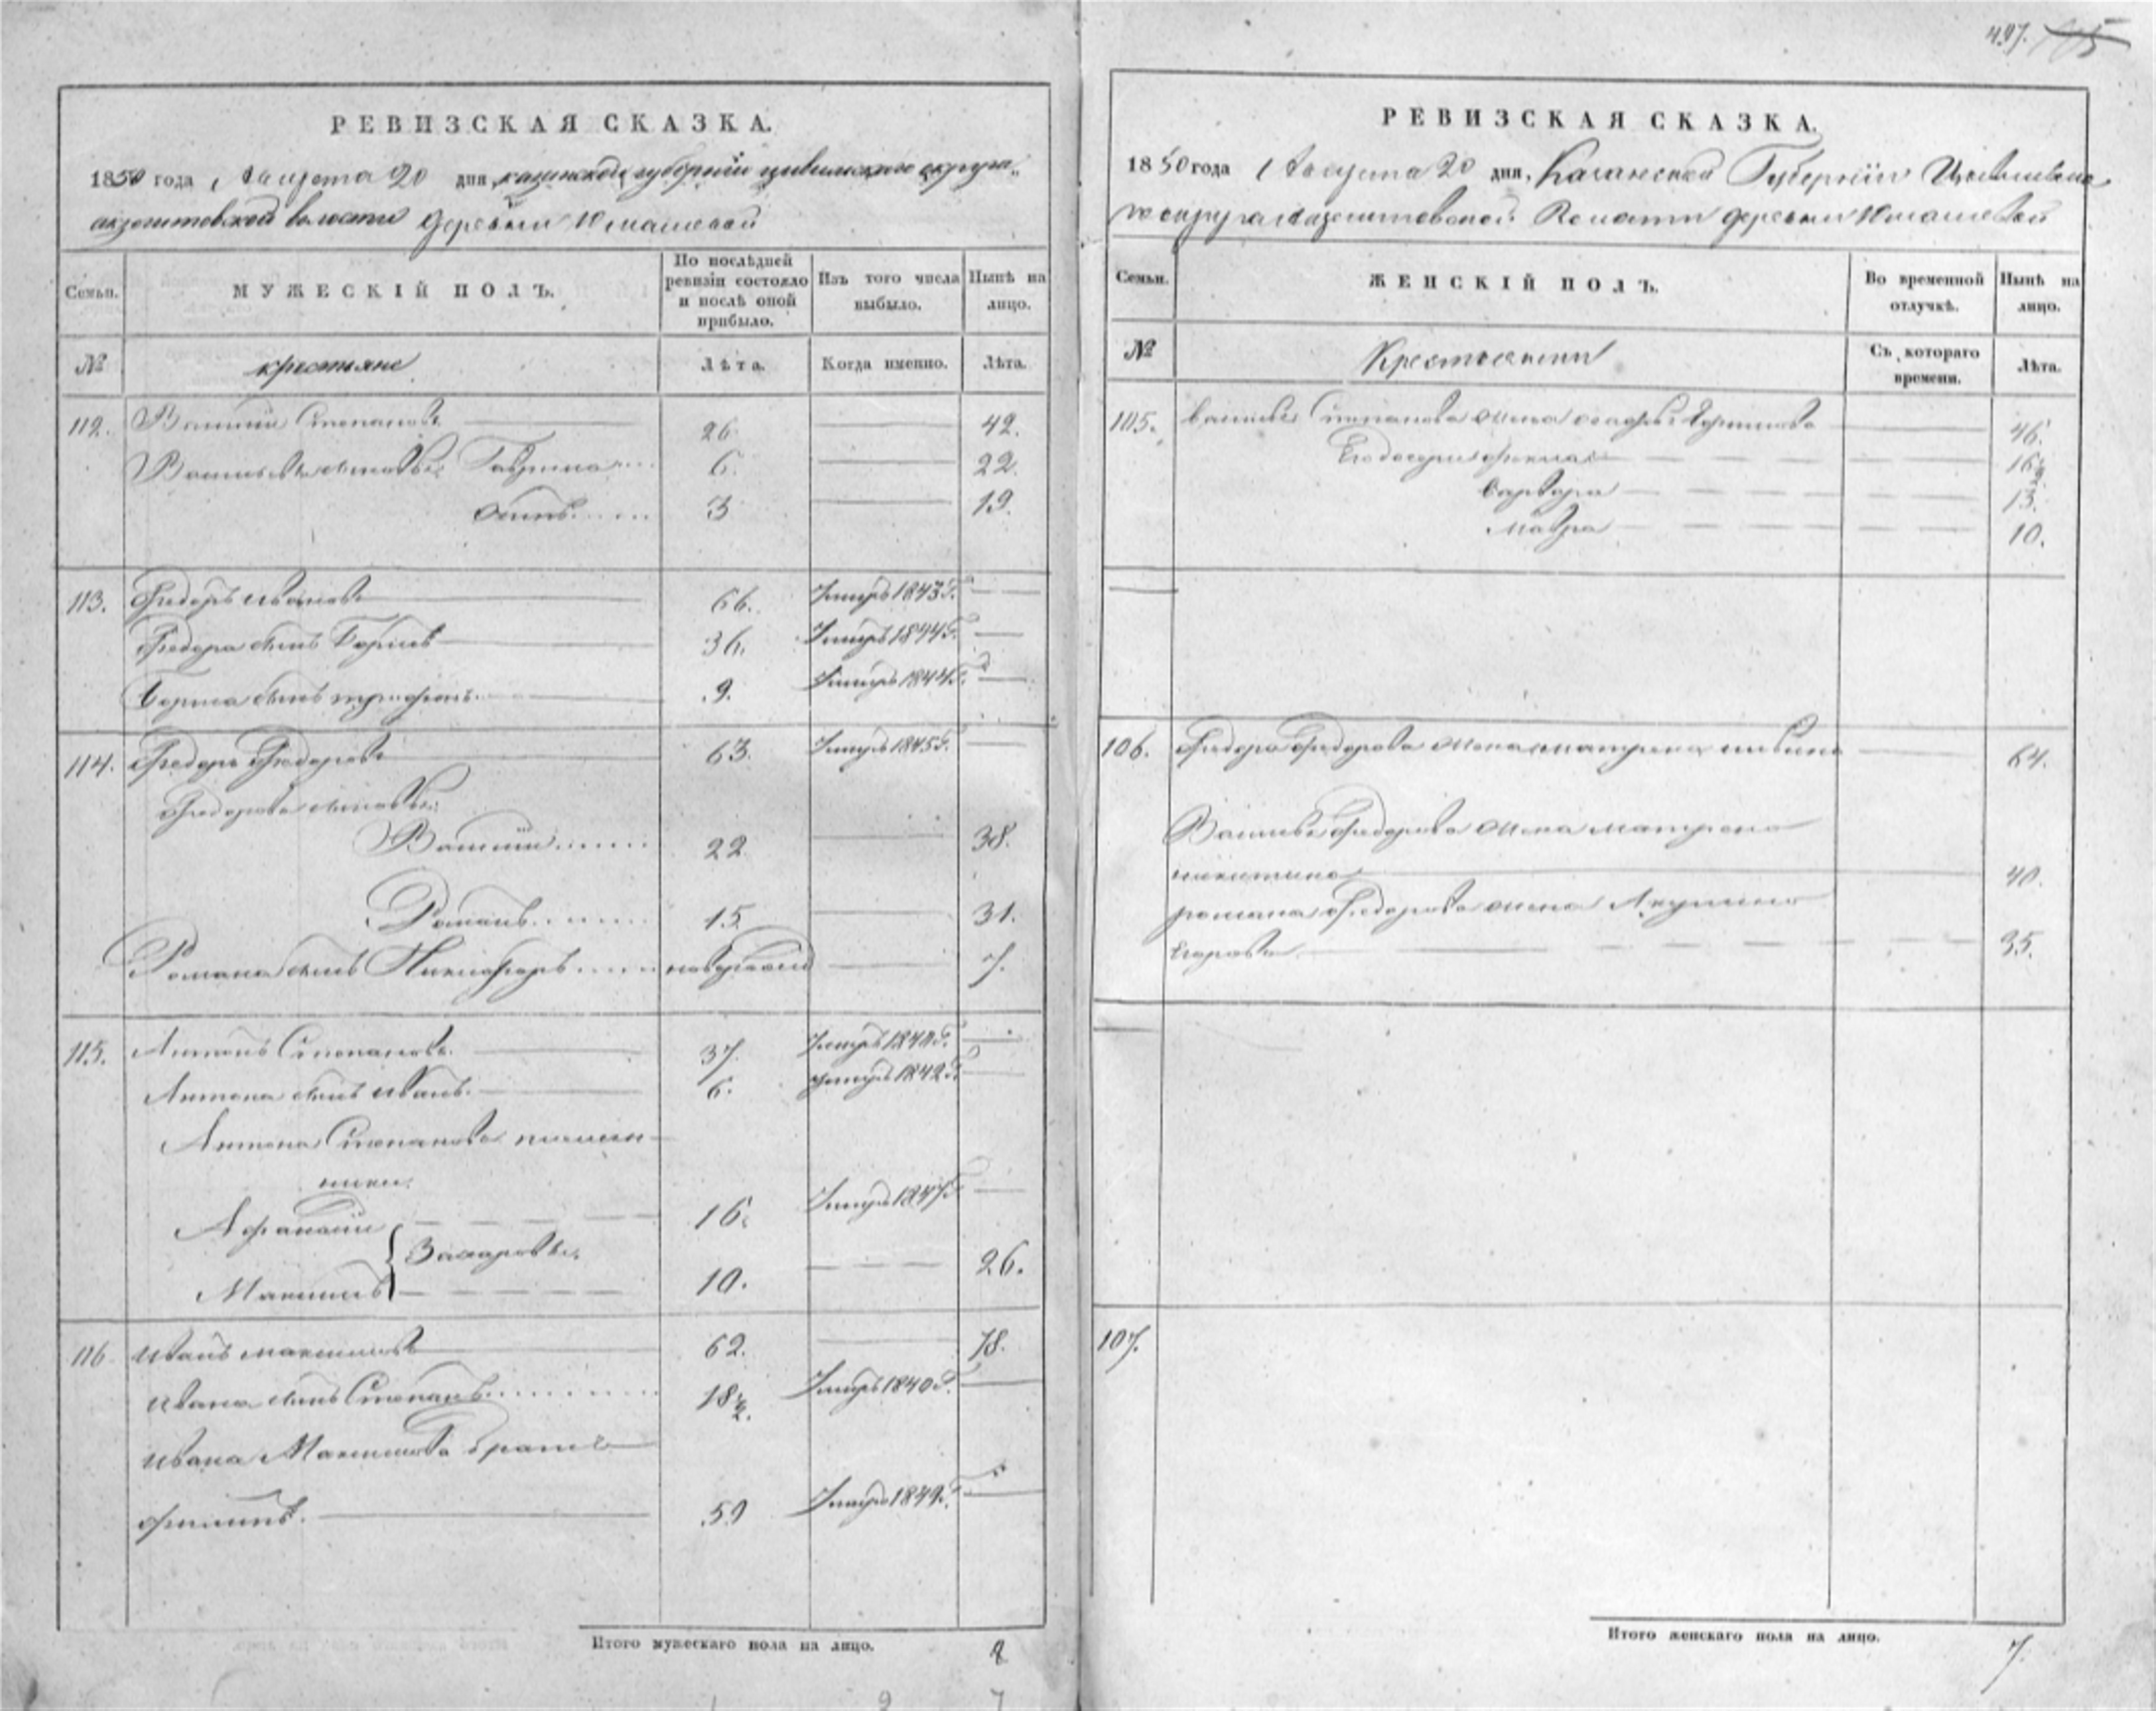 497. 105
РЕВИЗСКАЯ СКАЗКА.
1850 года Августа 20 дня, казанской губерніи цивильскаго округа
акзегитовской волости деревни Юмашевой
Семьи.
МУЖЕСКІЙ ПОЛЪ.
По послѣдней ревизіи состояло и послѣ оной прибыло.
Изъ того числа выбыло.
Нынѣ на лицо.
№
крестьяне
Лѣта.
Когда именно.
Лѣта.
112. Василій Степановъ 26 42.
Васильевы сыновья Гаврила 6. 22.
Осипъ 3 19.
113. Федоръ Ивановъ 66. Умеръ 1843 г.
Федора сынъ Борисъ 36. Умеръ 1844 г.
Бориса сынъ Трифонъ 9. Умеръ 1844 г.
114. Федоръ Федоровъ 63. Умеръ 1845 г.
Федорова сыновья
Василій 22 38.
Романъ 15 31.
Романа сынъ Никифоръ 7.
115. Антонъ Степановъ 37. Умеръ 1840 г.
Антона сынъ Иванъ 6. умеръ 1842 г.
Антона Степанова племян
ники.
Афанасій 16. Умеръ 1847 г.
Захаровы.
Максимъ 10. 26.
116 Иванъ Максимовъ 62. 78.
Ивана сынъ Степанъ 18½. Умеръ 1840 г.
Ивана Максимова братъ
Филипъ. 59 Умеръ 1849 г.
Итого мужескаго пола на лицо. 8
РЕВИЗСКАЯ СКАЗКА.
1850 года Августа 20 дня, Казанской Губерніи Цивильска
го округа Акзегитовской Волости деревни Юмашевой
Семьи.
ЖЕНСКІЙ ПОЛЪ.
Во временной отлучкѣ.
Нынѣ на лицо.
№
Крестьянки
Съ котораго времени.
Лѣта.
105. Василья Степанова жена 46.
Его дочери Фекла 16½
Варвара 13.
Мавра 10.
106. Федора Федорова жена матрена 64.
Василья Федорова жена матрена
никитина 40.
романа Федорова жена Акулина
Егорова 35.
107.
Итого женскаго пола на лицо. 7.